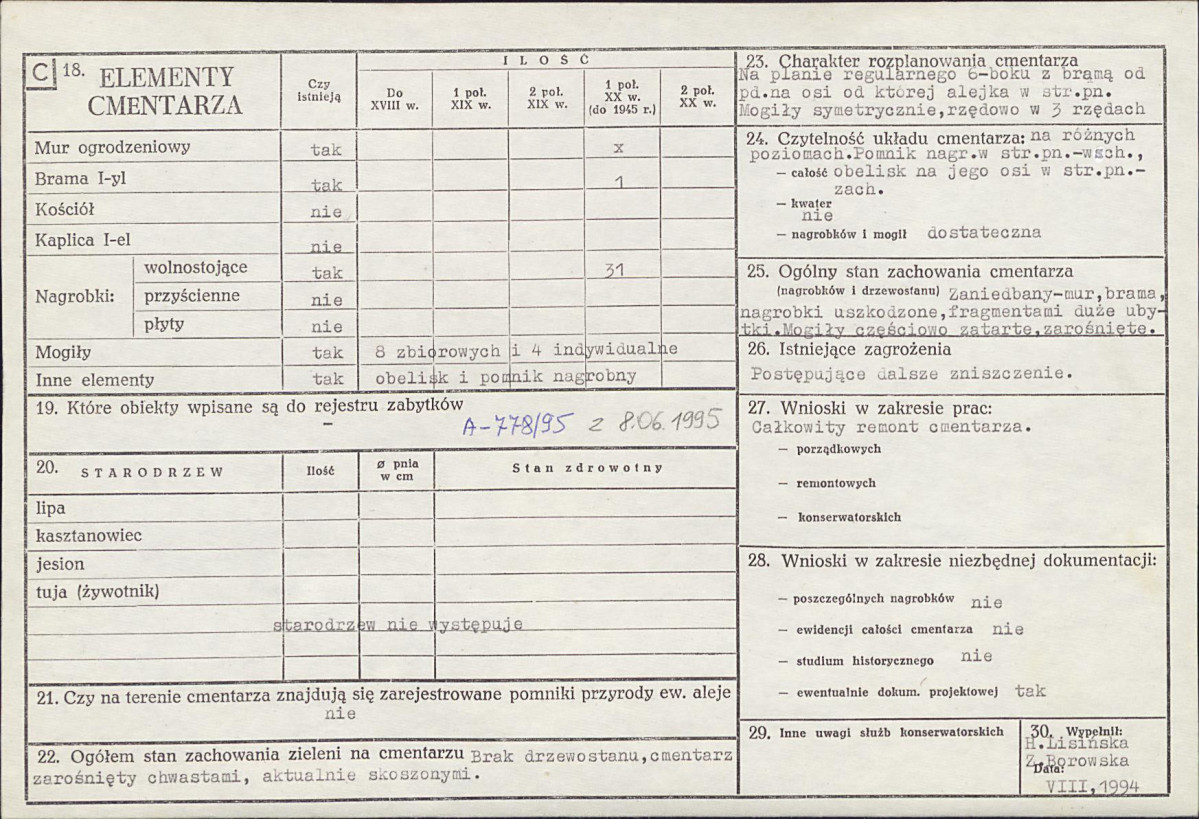 C 18. ELEMENTY CMENTARZA
Czy istnieją
I L O Ś Ć
Do XVIII w.
1 poł. XIX w.
2 poł. XIX w.
1 poł. XX w. (do 1945 r.)
2 poł. XX w.
Mur ogrodzeniowy tak x
Brama I-yl tak 1
Kościół nie
Kaplica I-el nie
Nagrobki:
wolnostojące tak 31
przyścienne nie
płyty nie
Mogiły tak 8 zbiorowych i 4 indywidualne
Inne elementy tak obelisk i pomnik nagrobny
19. Które obiekty wpisane są do rejestru zabytków
– A-778/95 z 8.06.1995
20. STARODRZEW Ilość ø pnia w cm Stan zdrowotny
lipa
kasztanowiec
jesion
tuja (żywotnik)
starodrzew nie występuje
21. Czy na terenie cmentarza znajdują się zarejestrowane pomniki przyrody ew. aleje
nie
22. Ogółem stan zachowania zieleni na cmentarzu Brak drzewostanu,cmentarz
zarośnięty chwastami, aktualnie skoszonymi.
23. Charakter rozplanowania cmentarza
Na planie regularnego 6-boku z bramą od
pd.na osi od której alejka w str.pn.
Mogiły symetrycznie,rzędowo w 3 rzędach
24. Czytelność układu cmentarza: na różnych
poziomach.Pomnik nagr.w str.pn.-wsch.,
— całość obelisk na jego osi w str.pn.-
zach.
— kwater
nie
— nagrobków i mogił dostateczna
25. Ogólny stan zachowania cmentarza
(nagrobków i drzewostanu) Zaniedbany-mur,brama,
nagrobki uszkodzone,fragmentami duże uby-
tki.Mogiły częściowo zatarte,zarośnięte.
26. Istniejące zagrożenia
Postępujące dalsze zniszczenie.
27. Wnioski w zakresie prac:
Całkowity remont cmentarza.
— porządkowych
— remontowych
— konserwatorskich
28. Wnioski w zakresie niezbędnej dokumentacji:
— poszczególnych nagrobków nie
— ewidencji całości cmentarza nie
— studium historycznego nie
— ewentualnie dokum. projektowej tak
29. Inne uwagi służb konserwatorskich
30. Wypełnił:
H.Lisińska
Z.Borowska
Data:
VIII,1994